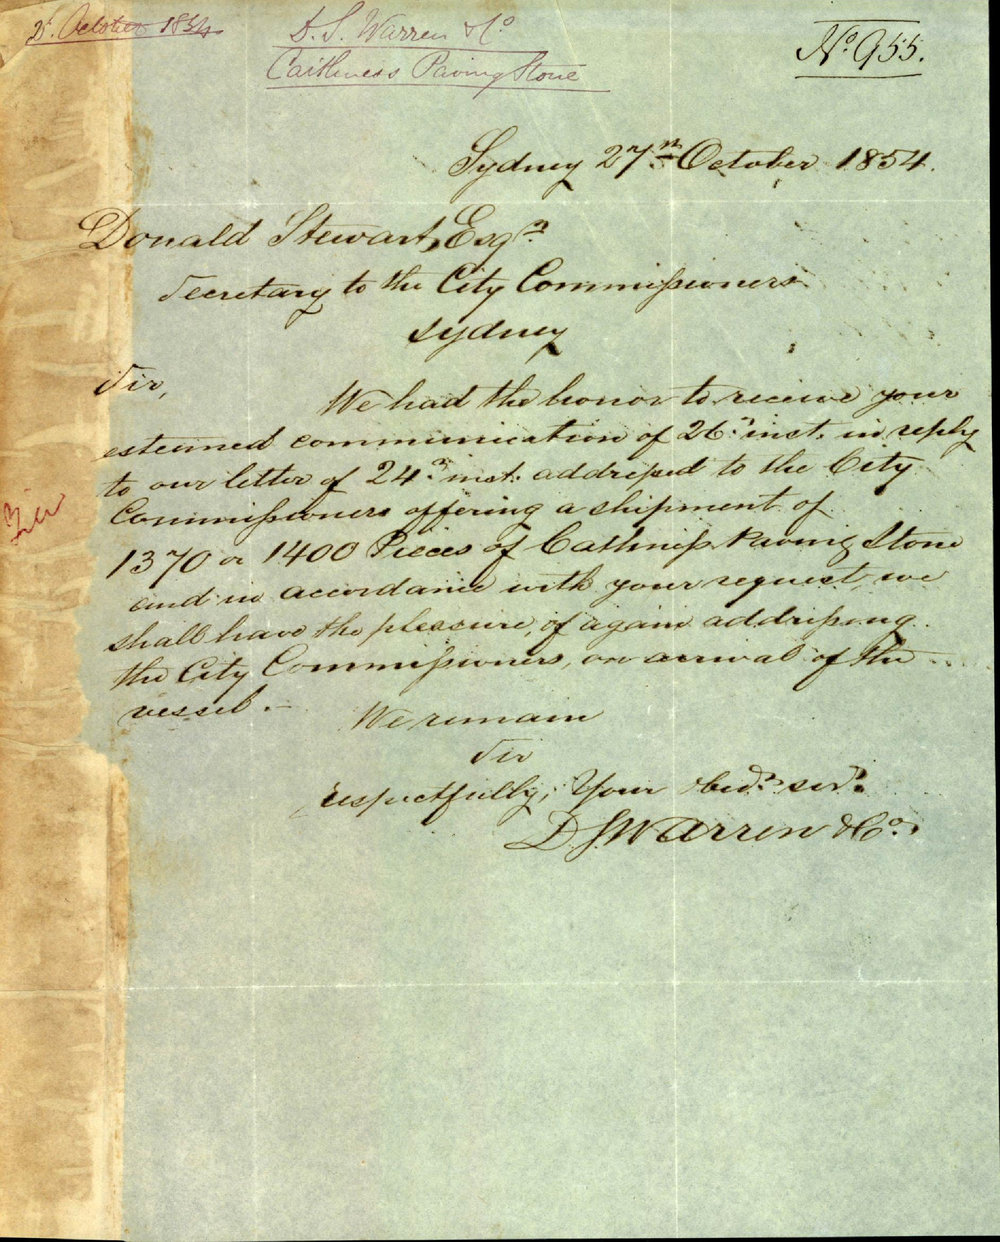 October 1854
D. S. Warren & Co
Caithness Paving Stone
No 955.
Sydney 27th October 1854.
Donald Stewart, Esqre
Secretary to the City Commissioners
Sydney
Sir,
We had the honor to receive your
esteemed communication of 26th inst. in reply
to our letter of 24th inst. addressed to the City
Commissioners offering a shipment of
1370 or 1400 Pieces of Cathness Paving Stone
and in accordance with your request, we
shall have the pleasure, of again addressing
the City Commissioners, on arrival of the
vessel.
We remain
Sir
respectfully, Your obedt servt
D S Warren & Co.